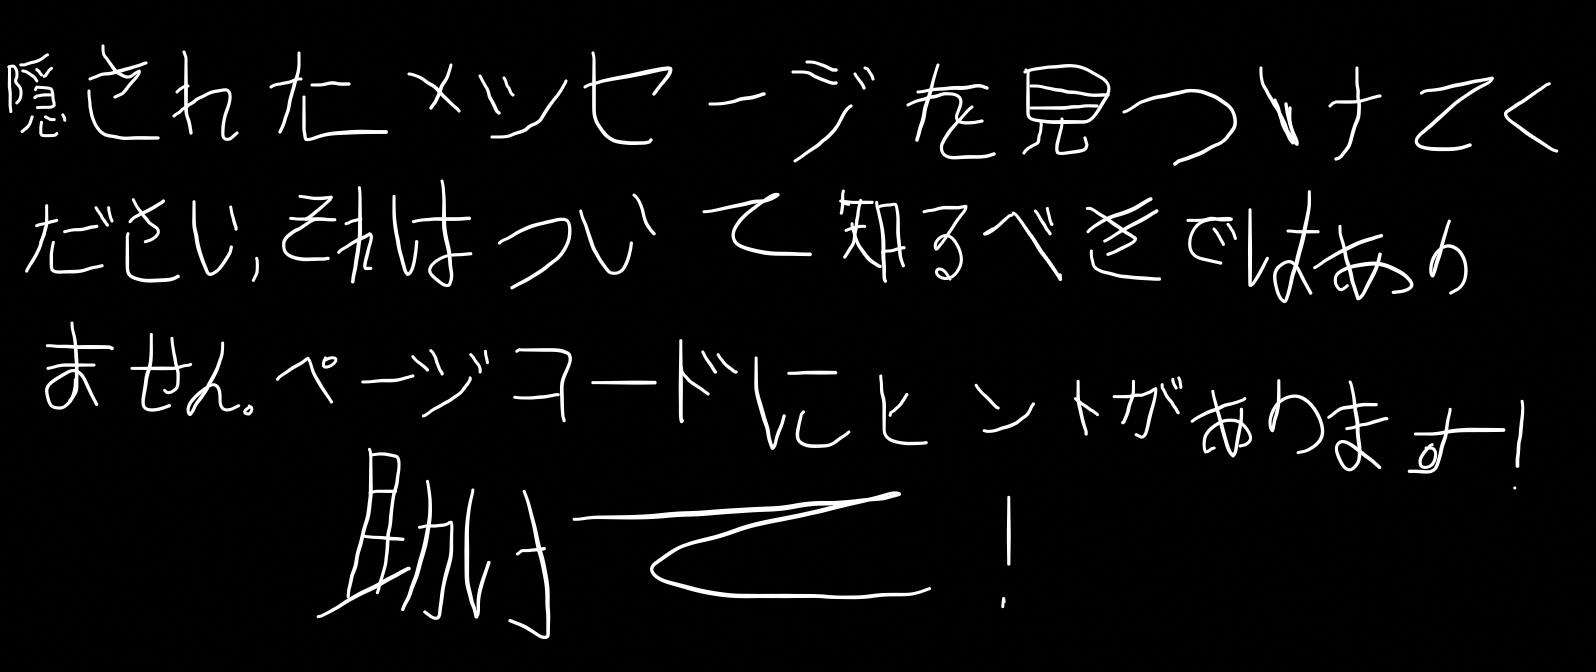 隠されたメッセージを見つけてく
ださい, それはついて知るべきではあり
ません。ページコードにヒントがあります!
助けて!